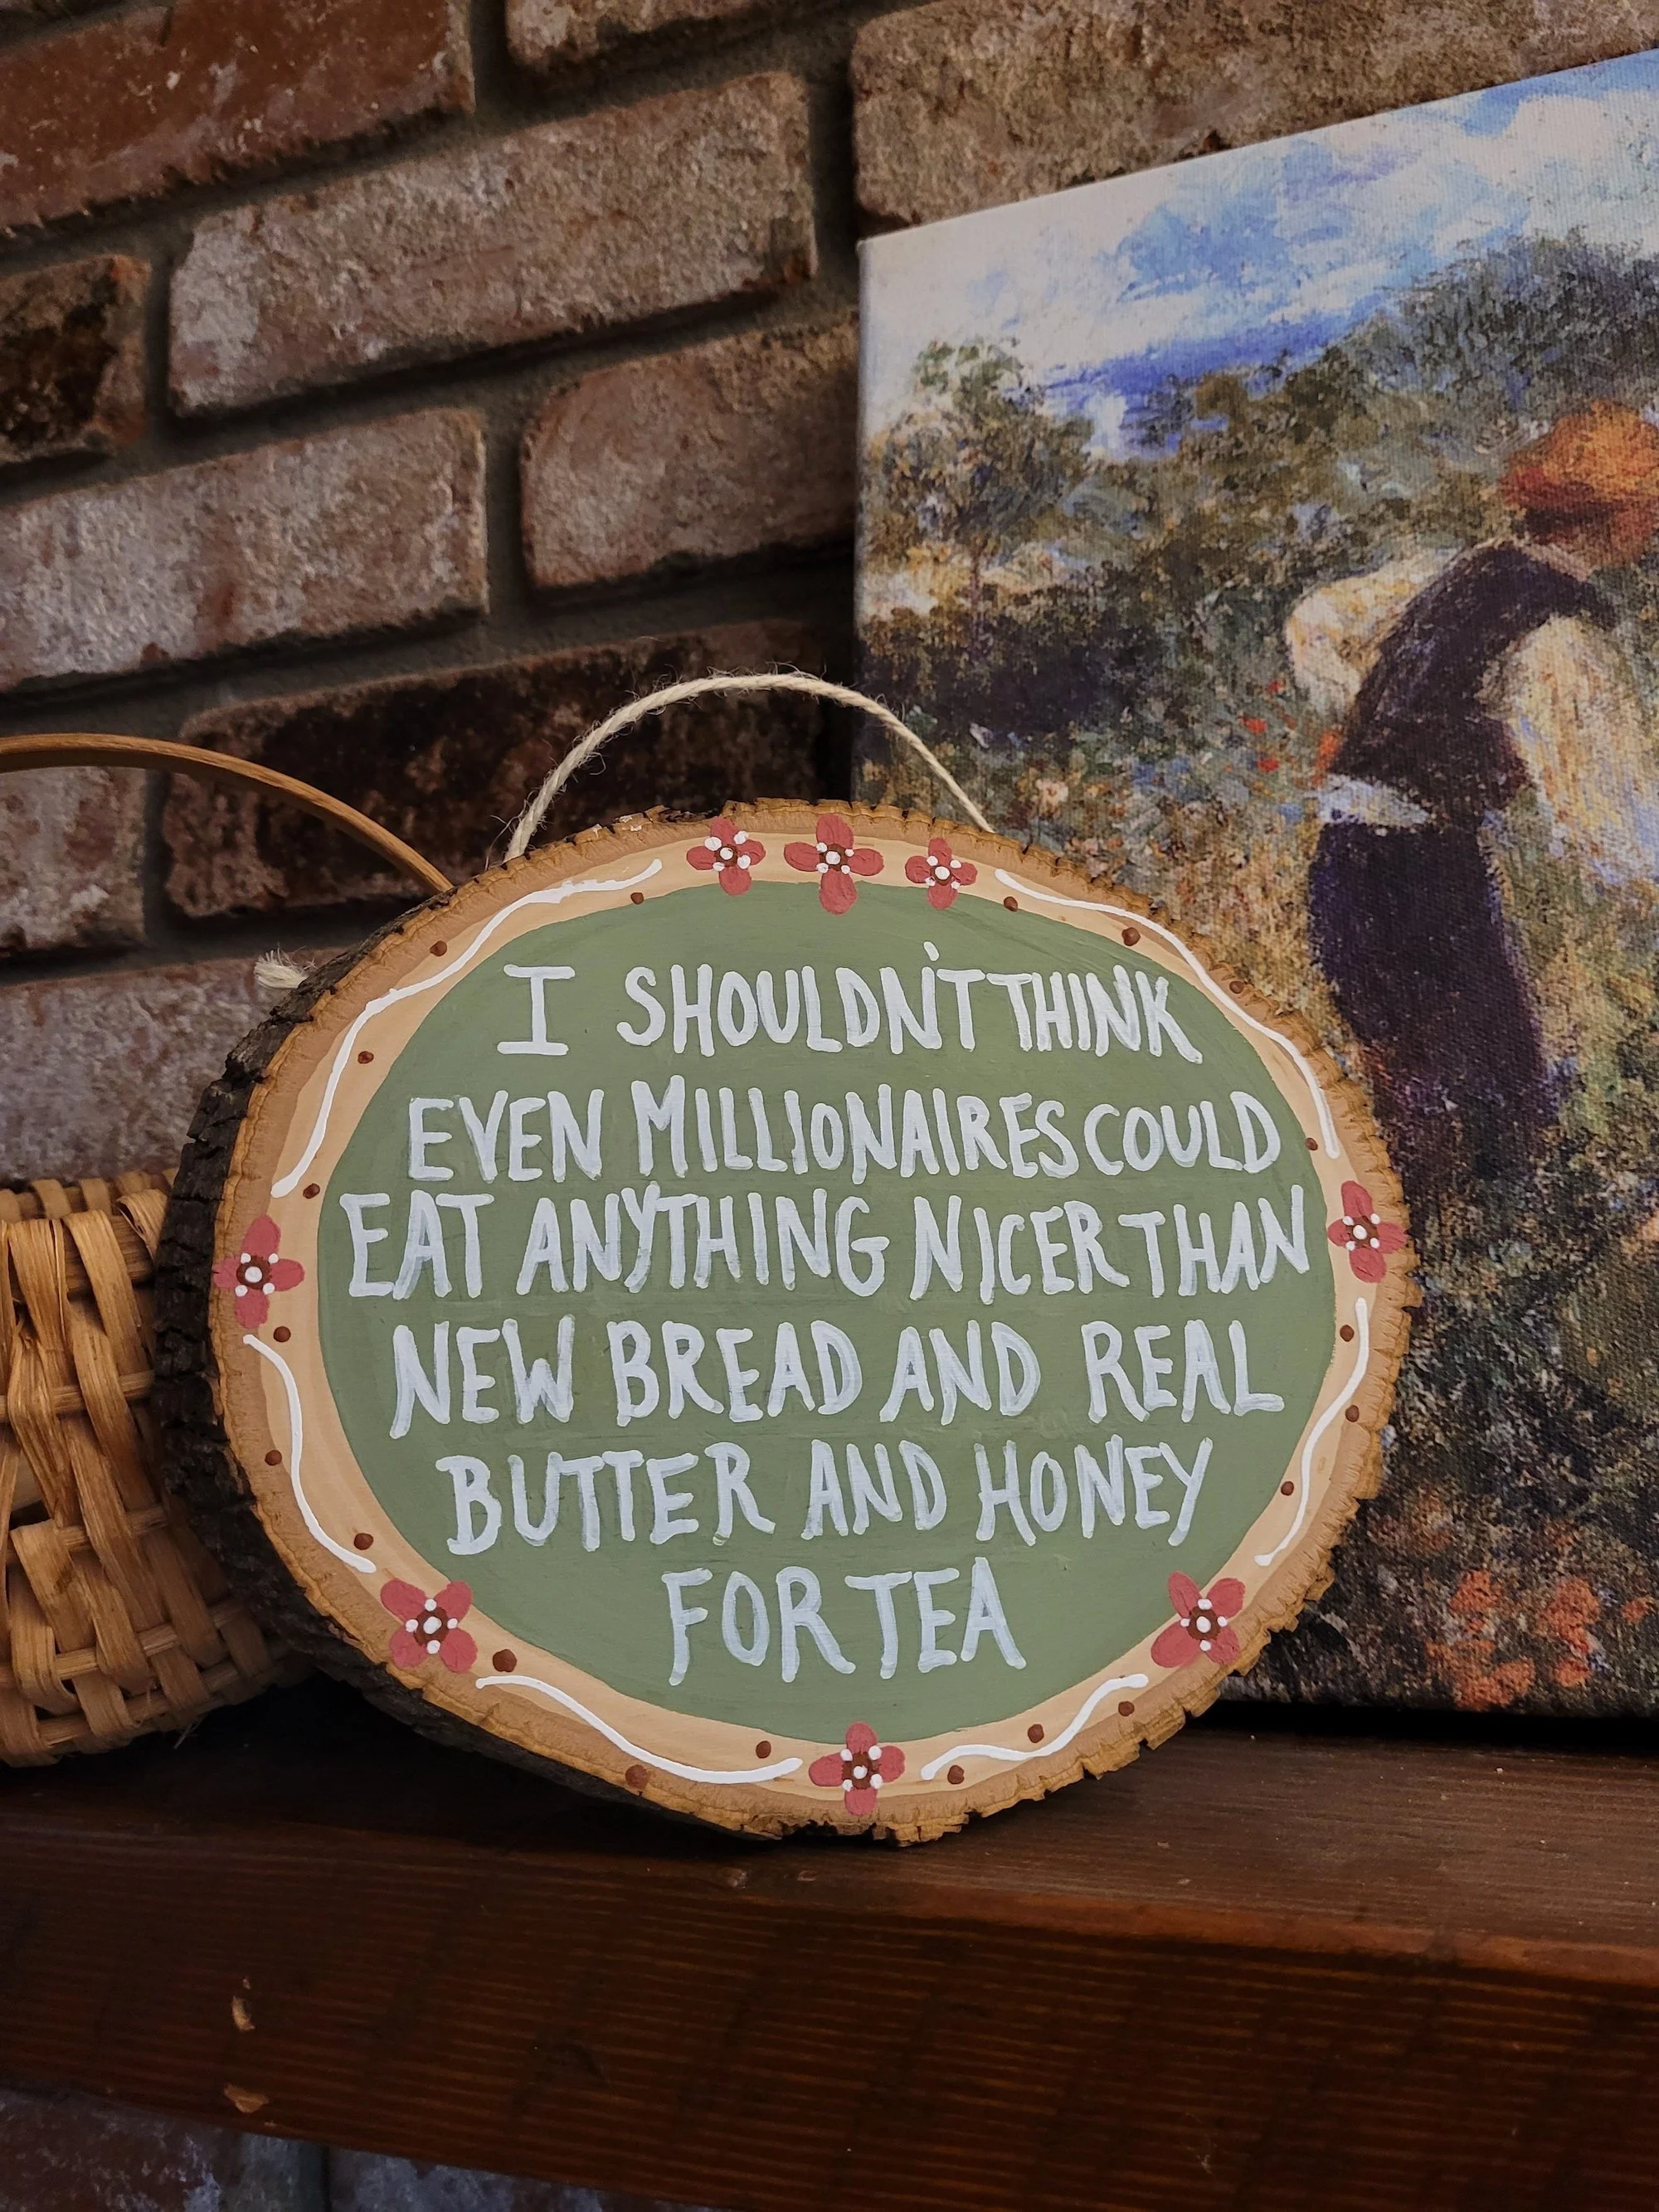 I SHOULDN'T THINK
EVEN MILLIONAIRES COULD
EAT ANYTHING NICER THAN
NEW BREAD AND REAL
BUTTER AND HONEY
FOR TEA